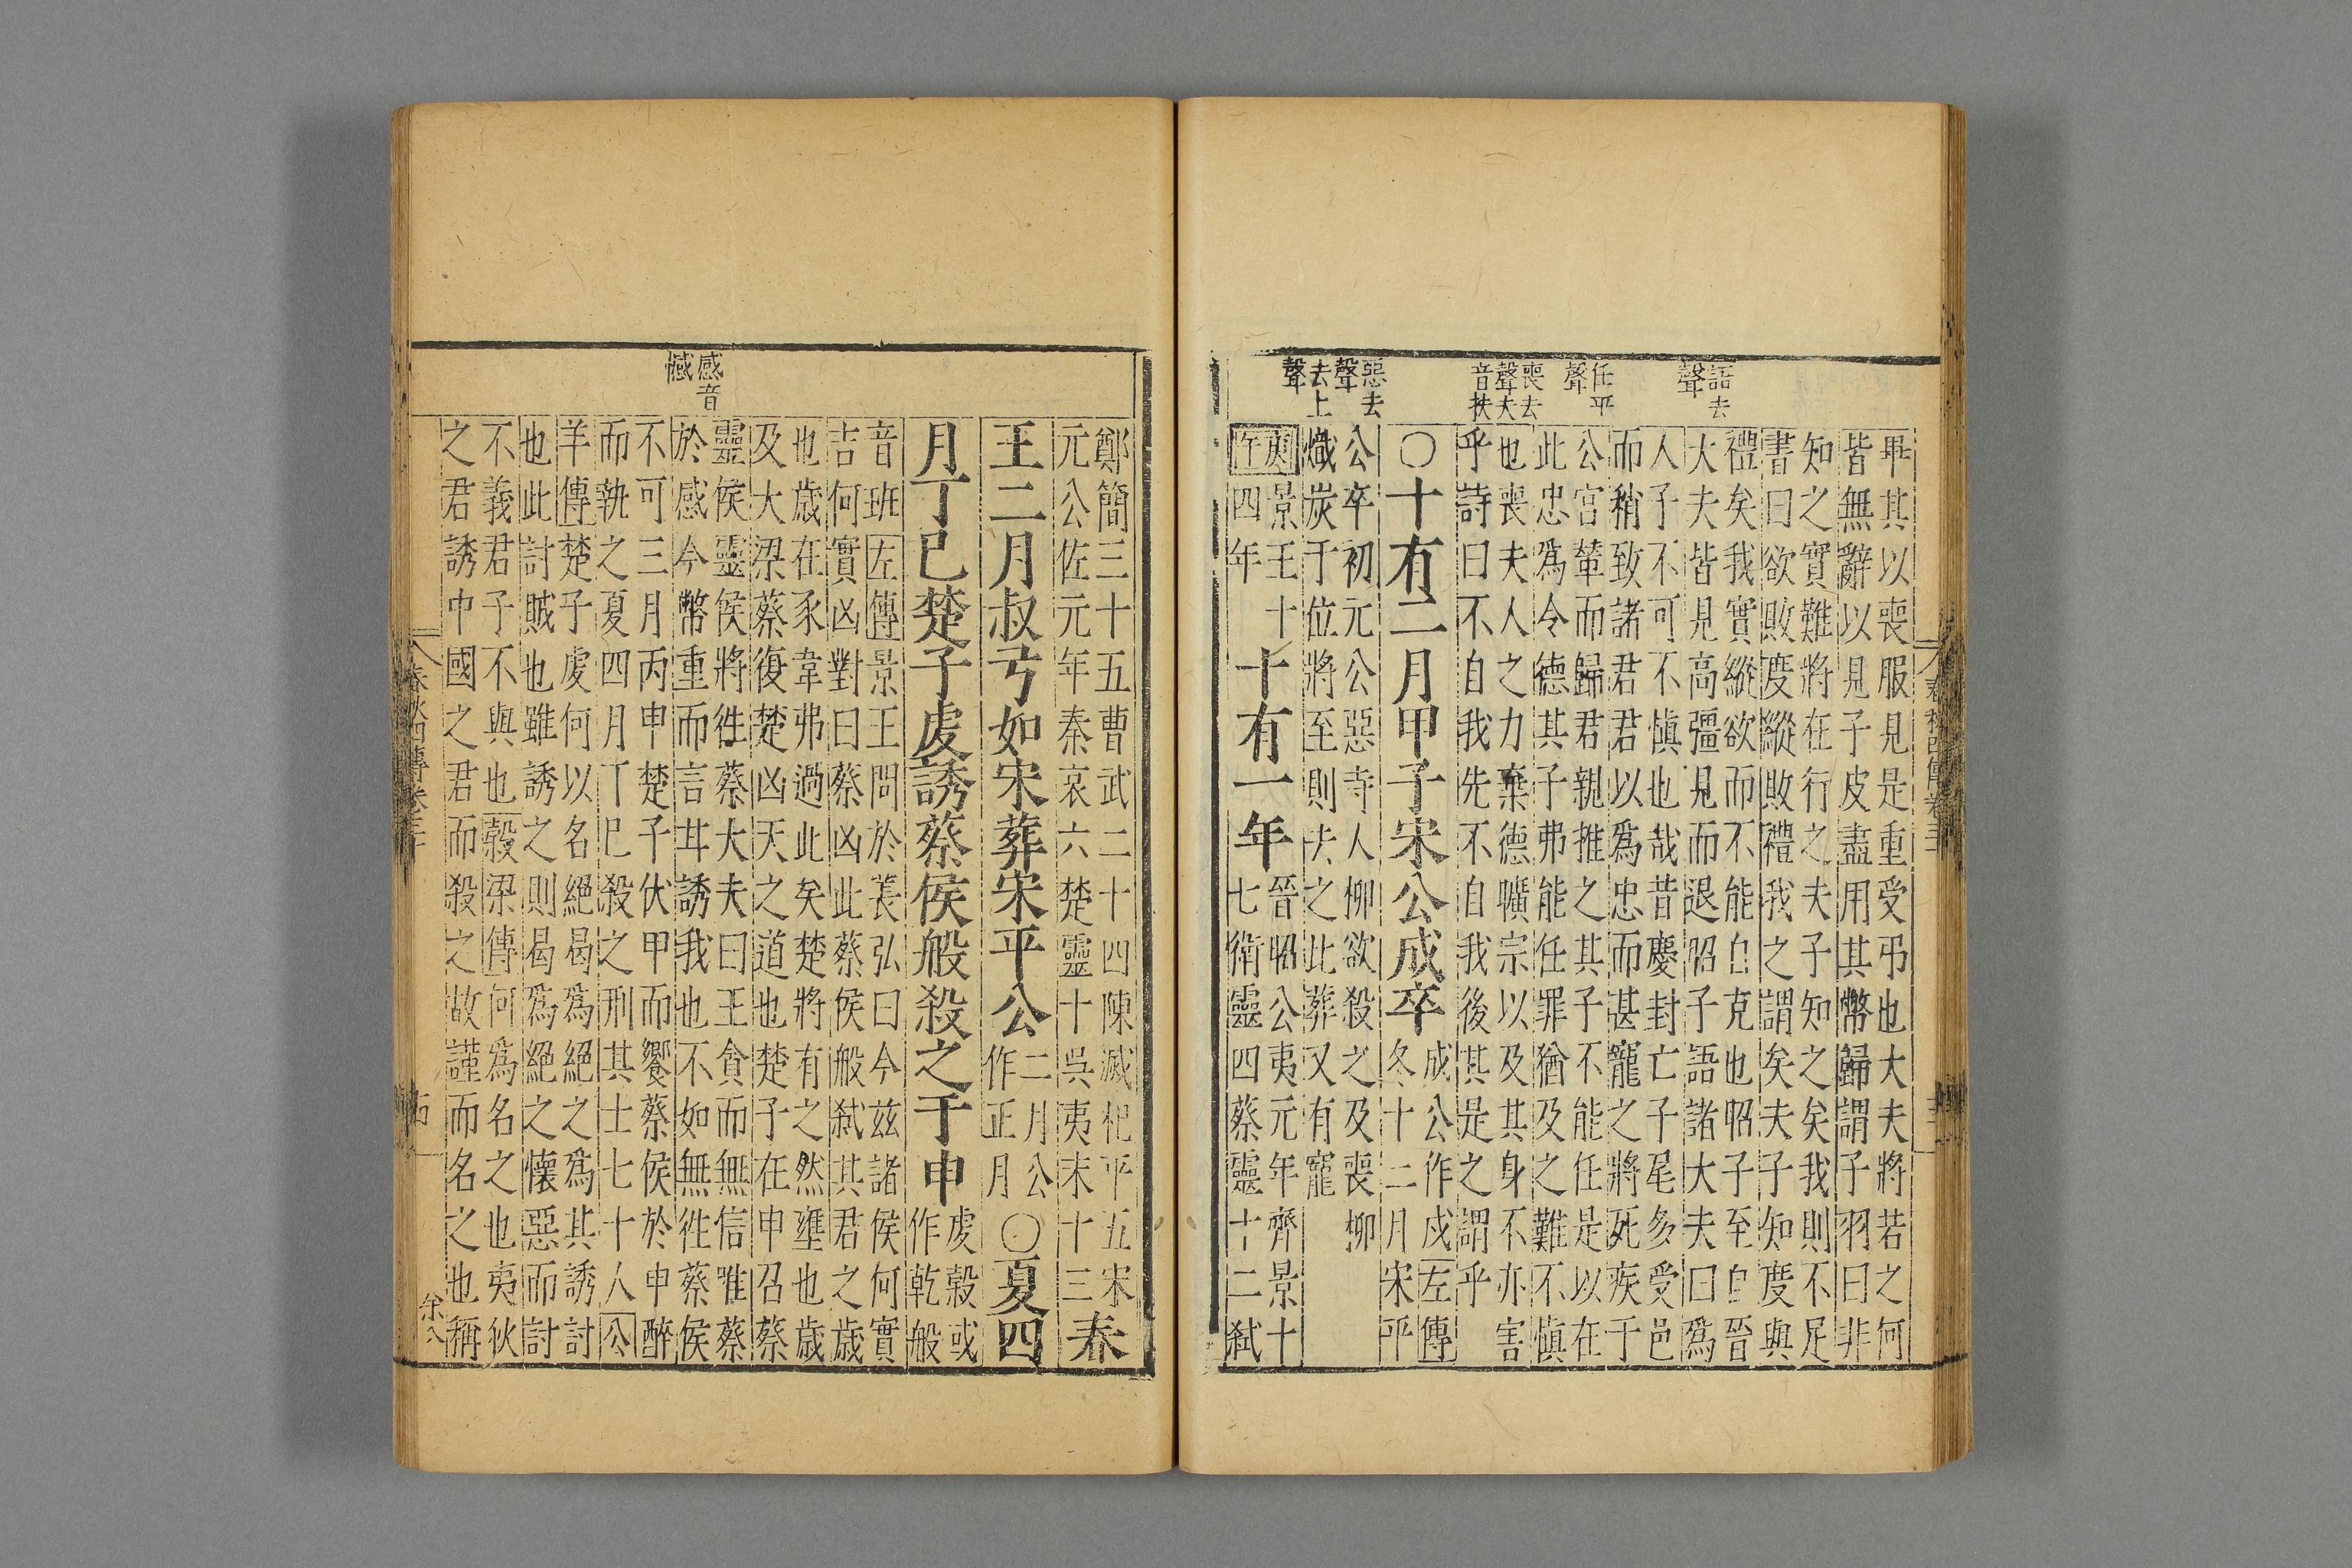 語去
聲
任平
聲
喪去
聲夫
音扶
惡去
聲
去上
聲
畢其以喪服見是重受弔也大夫將若之何
皆無辭以見子皮盡用其幣歸謂子羽曰非
知之實難將在行之夫子知之矣我則不足
書曰欲敗度縱敗禮我之謂矣夫子知度與
禮矣我實縱欲而不能自克也昭子至自晉
大夫皆見高彊見而退昭子語諸大夫曰爲
人子不可不慎也哉昔慶封亡子尾多受邑
而稍致諸君君以爲忠而甚寵之將死疾于
公宮輦而歸君親推之其子不能任是以在
此忠爲令德其子弗能任罪猶及之難不慎
也喪夫人之力棄德曠宗以及其身不亦害
乎詩曰不自我先不自我後其是之謂乎
〇十有二月甲子宋公成卒
成公作戍左傳
冬十二月宋平
公卒初元公惡寺人柳欲殺之及喪柳
熾炭于位將至則去之比葬又有寵
庚景王十
午四年
十有一年
晉昭公夷元年齊景十
七衛靈四蔡靈十二弒
感音
憾
鄭簡三十五曹武二十四陳滅杞平五宋
元公佐元年秦哀六楚靈十吳夷末十三春
王二月叔弓如宋葬宋平公
二月公
作正月
〇夏四
月丁巳楚子虔誘蔡侯般殺之于申
虔穀或
作乾般
音班左傳景王問於萇弘曰今茲諸侯何實
吉何實凶對曰蔡凶此蔡侯般弒其君之歲
也歲在豕韋弗過此矣楚將有之然壅也歲
及大梁蔡復楚凶天之道也楚子在申召蔡
靈侯靈侯將往蔡大夫曰王貪而無信唯蔡
於感今幣重而言甘誘我也不如無往蔡侯
不可三月丙申楚子伏甲而饗蔡侯於申醉
而執之夏四月丁巳殺之刑其士七十人公
羊傳楚子虔何以名絕曷爲絕之爲其誘討
也此討賊也雖誘之則曷爲絕之懷惡而討
不義君子不與也穀梁傳何爲名之也夷狄
之君誘中國之君而殺之故謹而名之也稱
春秋四傳卷三十